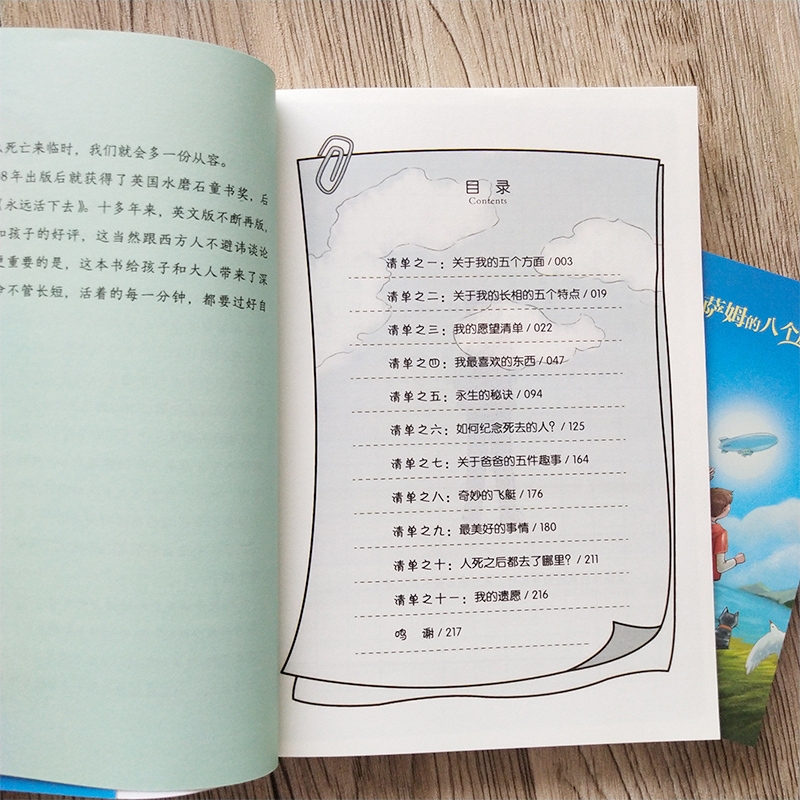 死亡来临时，我们就会多一份从容。
8年出版后就获得了英国水磨石童书奖，后
《永远活下去》。十多年来，英文版不断再版，
和孩子的好评，这当然跟西方人不避讳谈论
更重要的是，这本书给孩子和大人带来了深
不管长短，活着的每一分钟，都要过好自
目 录
Contents
清单之一：关于我的五个方面 / 003
清单之二：关于我的长相的五个特点 / 019
清单之三：我的愿望清单 / 022
清单之四：我最喜欢的东西 / 047
清单之五：永生的秘诀 / 094
清单之六：如何纪念死去的人？ / 125
清单之七：关于爸爸的五件趣事 / 164
清单之八：奇妙的飞艇 / 176
清单之九：最美好的事情 / 180
清单之十：人死之后都去了哪里？ / 211
清单之十一：我的遗愿 / 216
鸣 谢 / 217
萨姆的八个